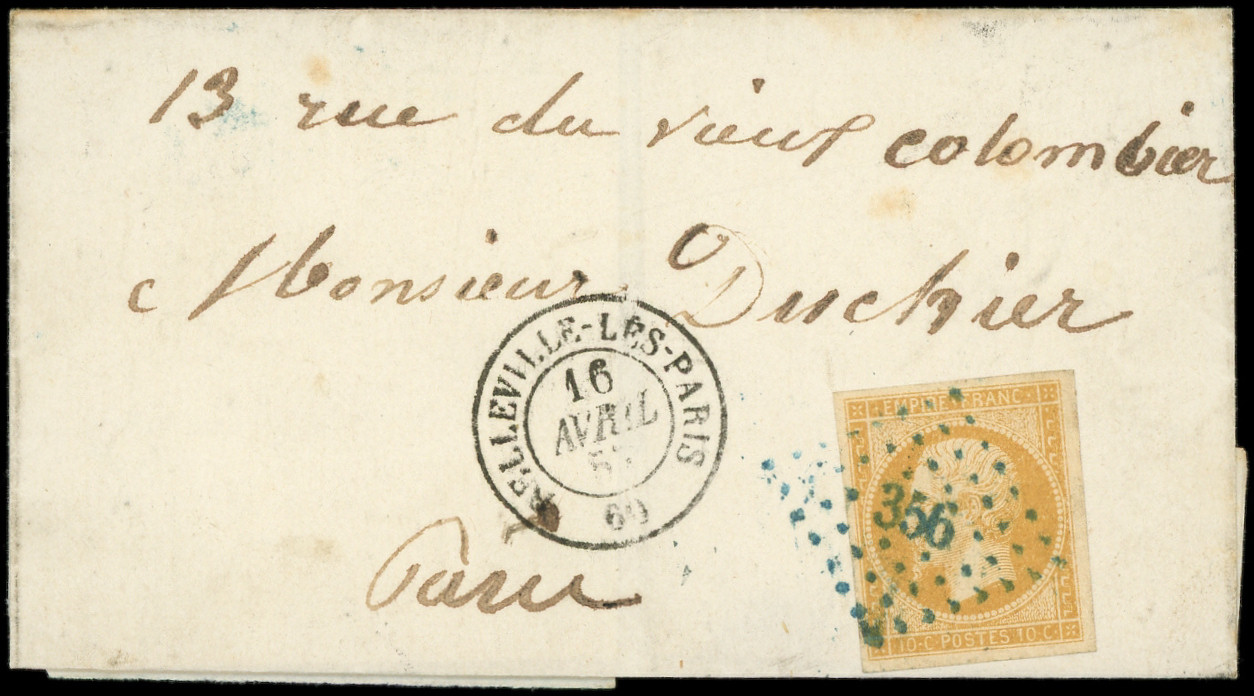 13 rue du vieux colombier
Monsieur Duchier
BELLEVILLE-LES-PARIS
16
AVRIL
60
Paris
EMPIRE FRANC
356
10·C·POSTES 10·C·